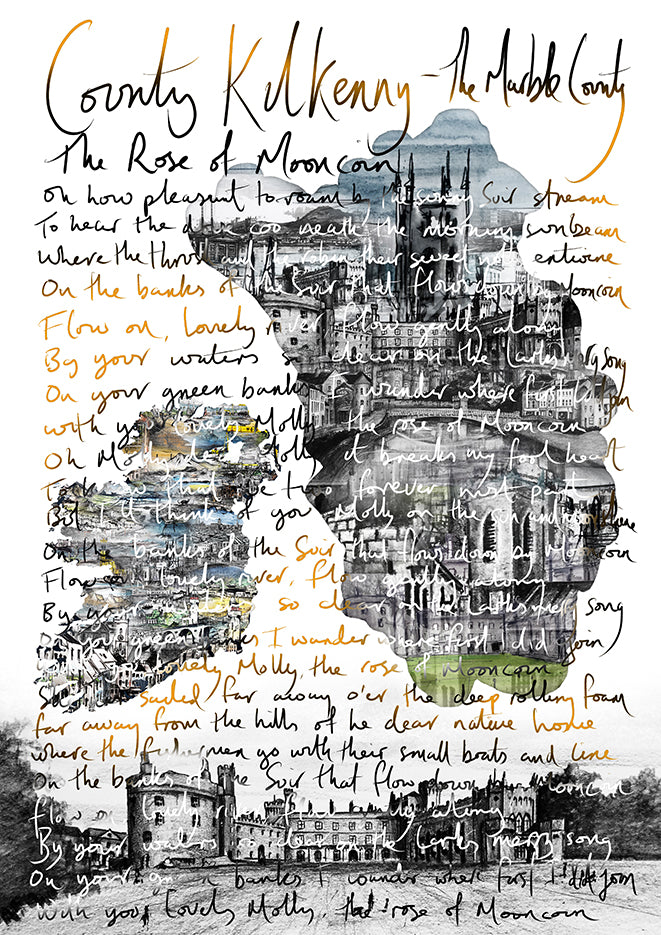 County Kilkenny - The Marble County
The Rose of Mooncoin
Oh how pleasant to roam by the sunny Suir stream
To hear the dove coo neath the morning sunbeam
Where the thrush and the robin their sweet notes entwine
On the banks of the Suir that flows down by Mooncoin
Flow on, lovely river, flow gently along
By your waters so clear on the larks merry song
On your green banks I wander where first did join
with you lovely Molly, the rose of Mooncoin
Oh Molly dear Molly it breaks my fond heart
To know that we two forever must part
But I'll think of you Molly on the sun and
On the banks of the Suir that flows down by Mooncoin
Flow on lovely river, flow gently along
By your waters so clear on the larks merry song
On your green banks I wander where first did join
with you lovely Molly, the rose of Mooncoin
She has sailed far away o'er the deep rolling foam
far away from the hills of he dear native home
where the fishermen go with their small boats and line
On the banks of the Suir that flow down by Mooncoin
Flow on lovely river flow gently along
By your waters so clear on the larks merry song
On your green banks I wander where first I did join
With you, lovely Molly, the rose of Mooncoin